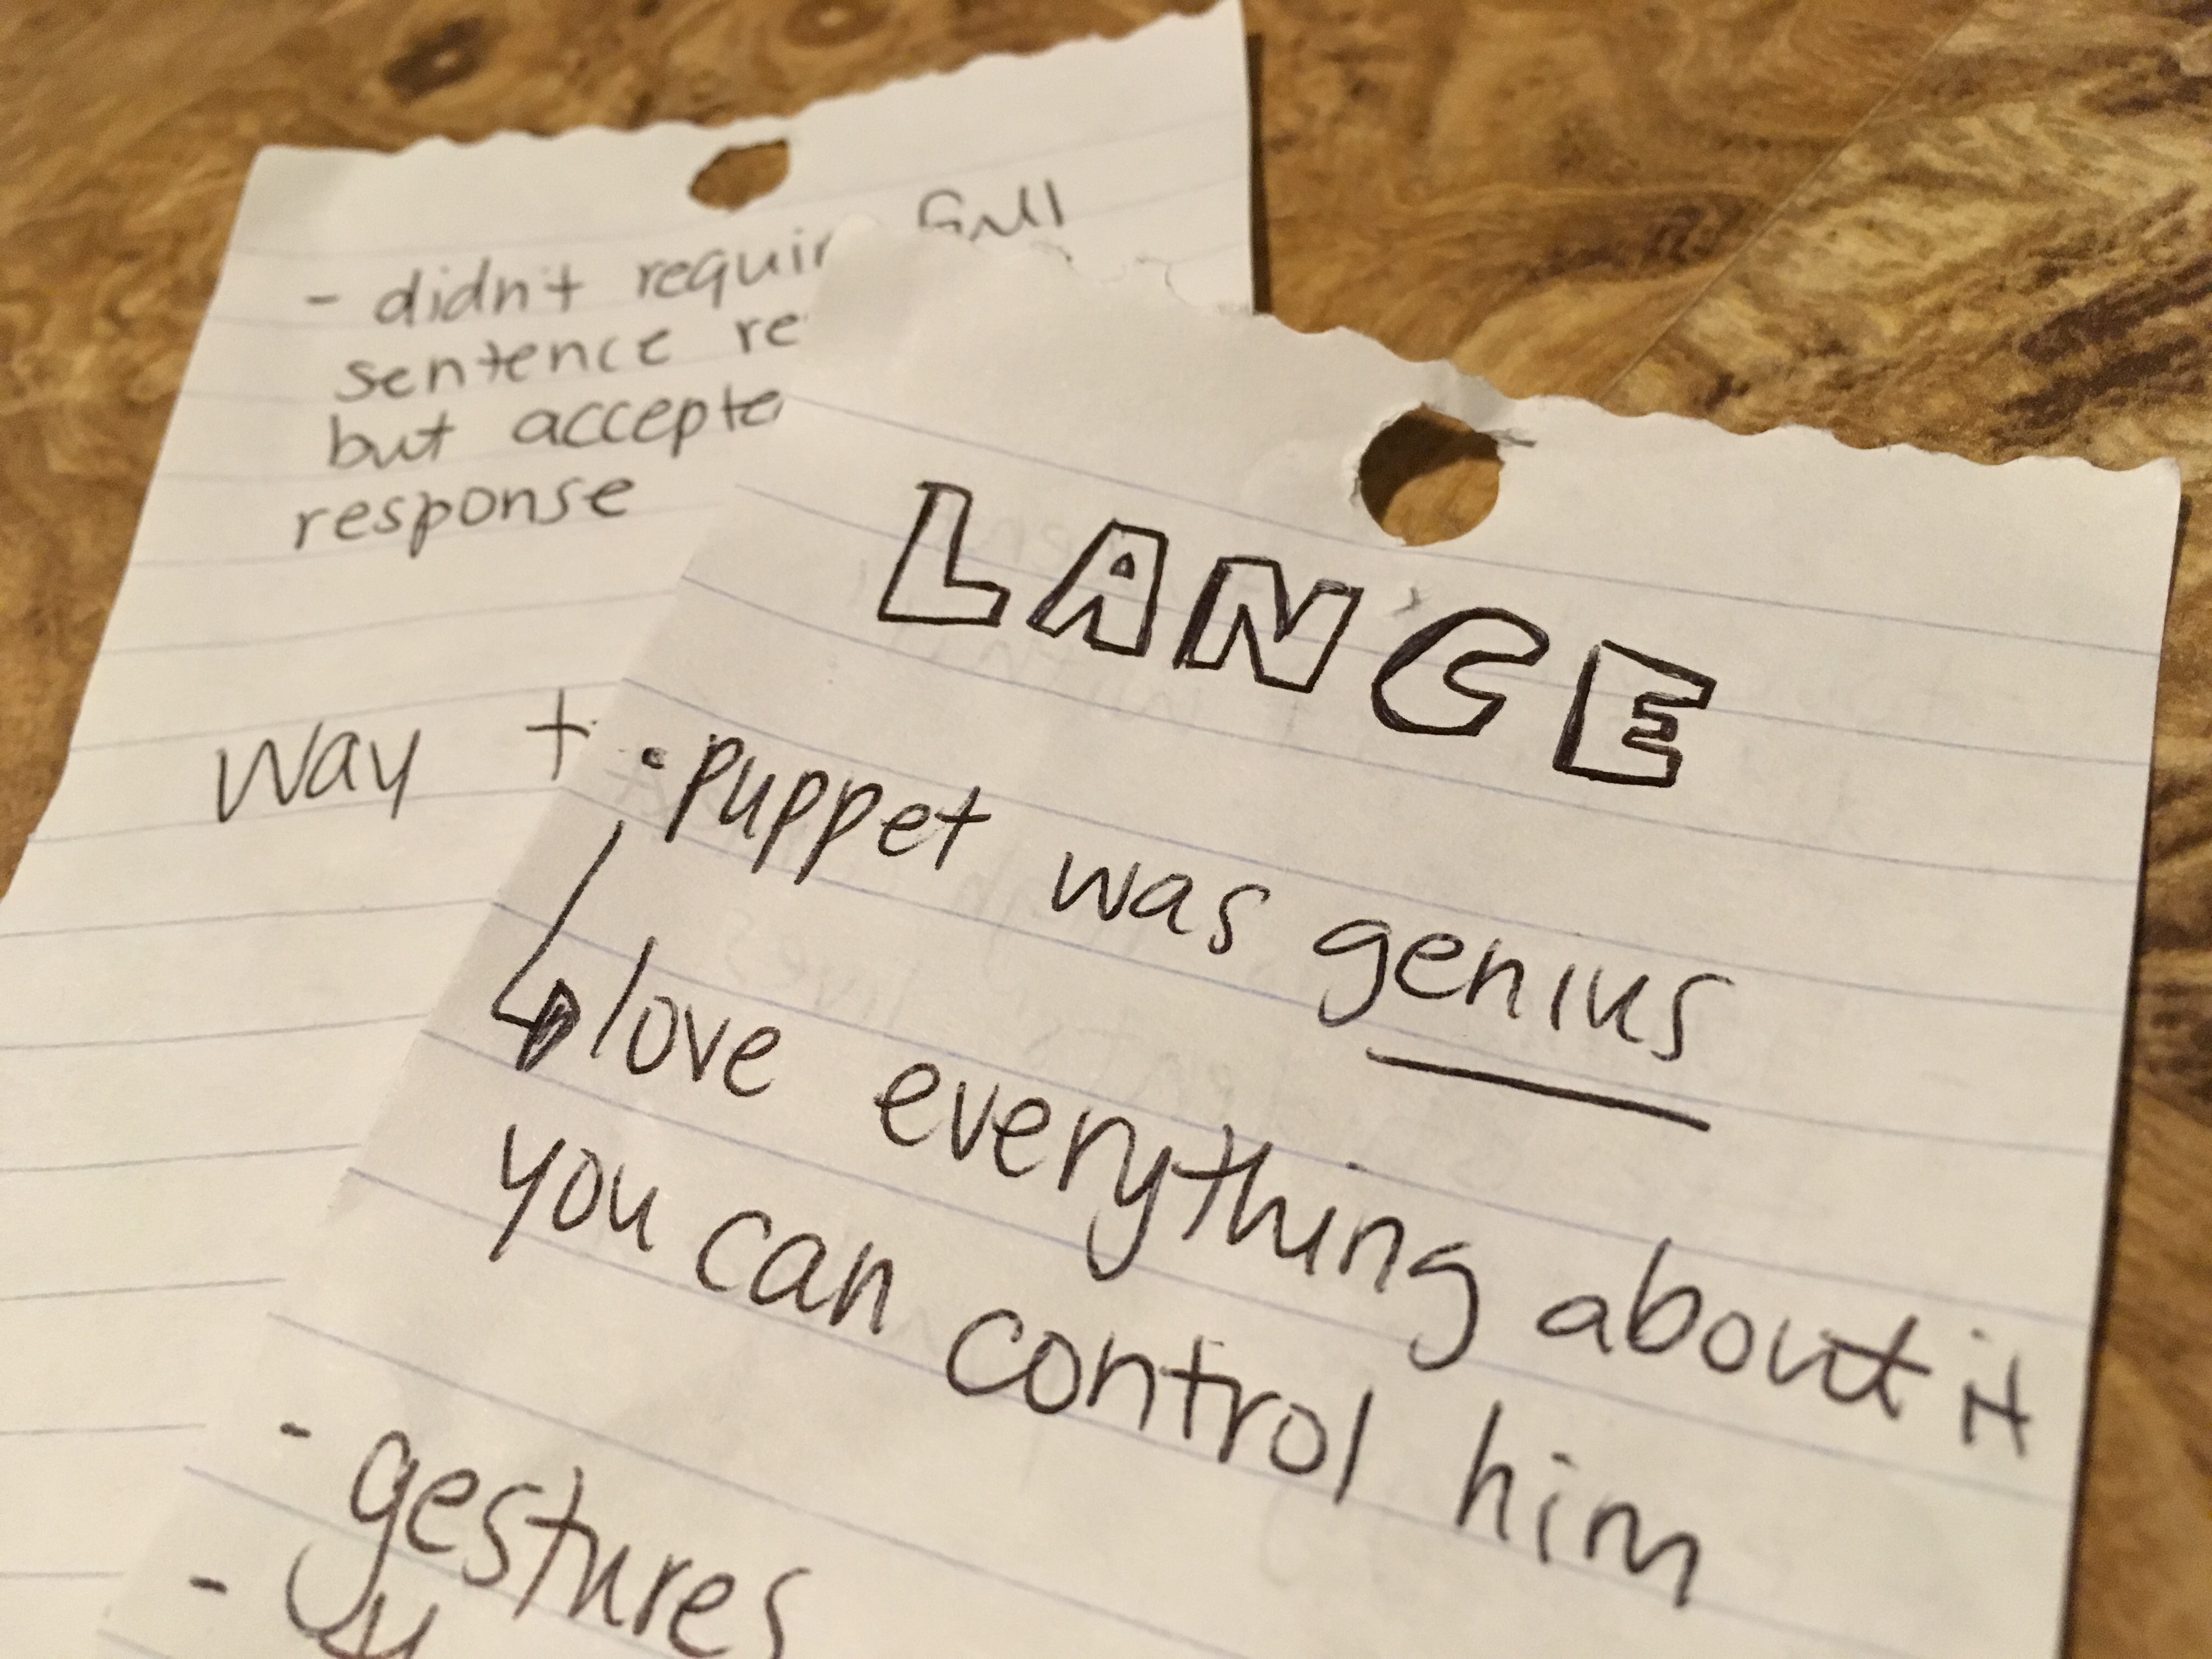 - didn't requir full
sentence re
but accepte
response
way t
LANCE
• puppet was genius
love everything about it
you can control him
- gestures
-